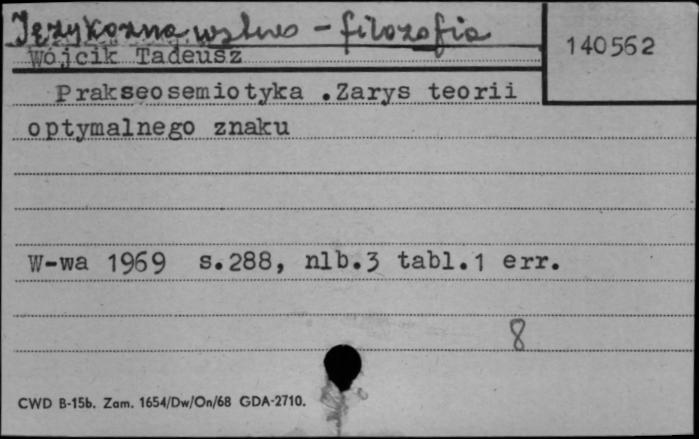 Językoznawstwo - filozofia
140562
Wójcik Tadeusz
Prakseosemiotyka .Zarys teorii
optymalnego znaku
W-wa 1969 s.288, nlb.3 tabl.1 err.
8
CWD B-15b. Zam. 1654/Dw/On/68 GDA-2710.